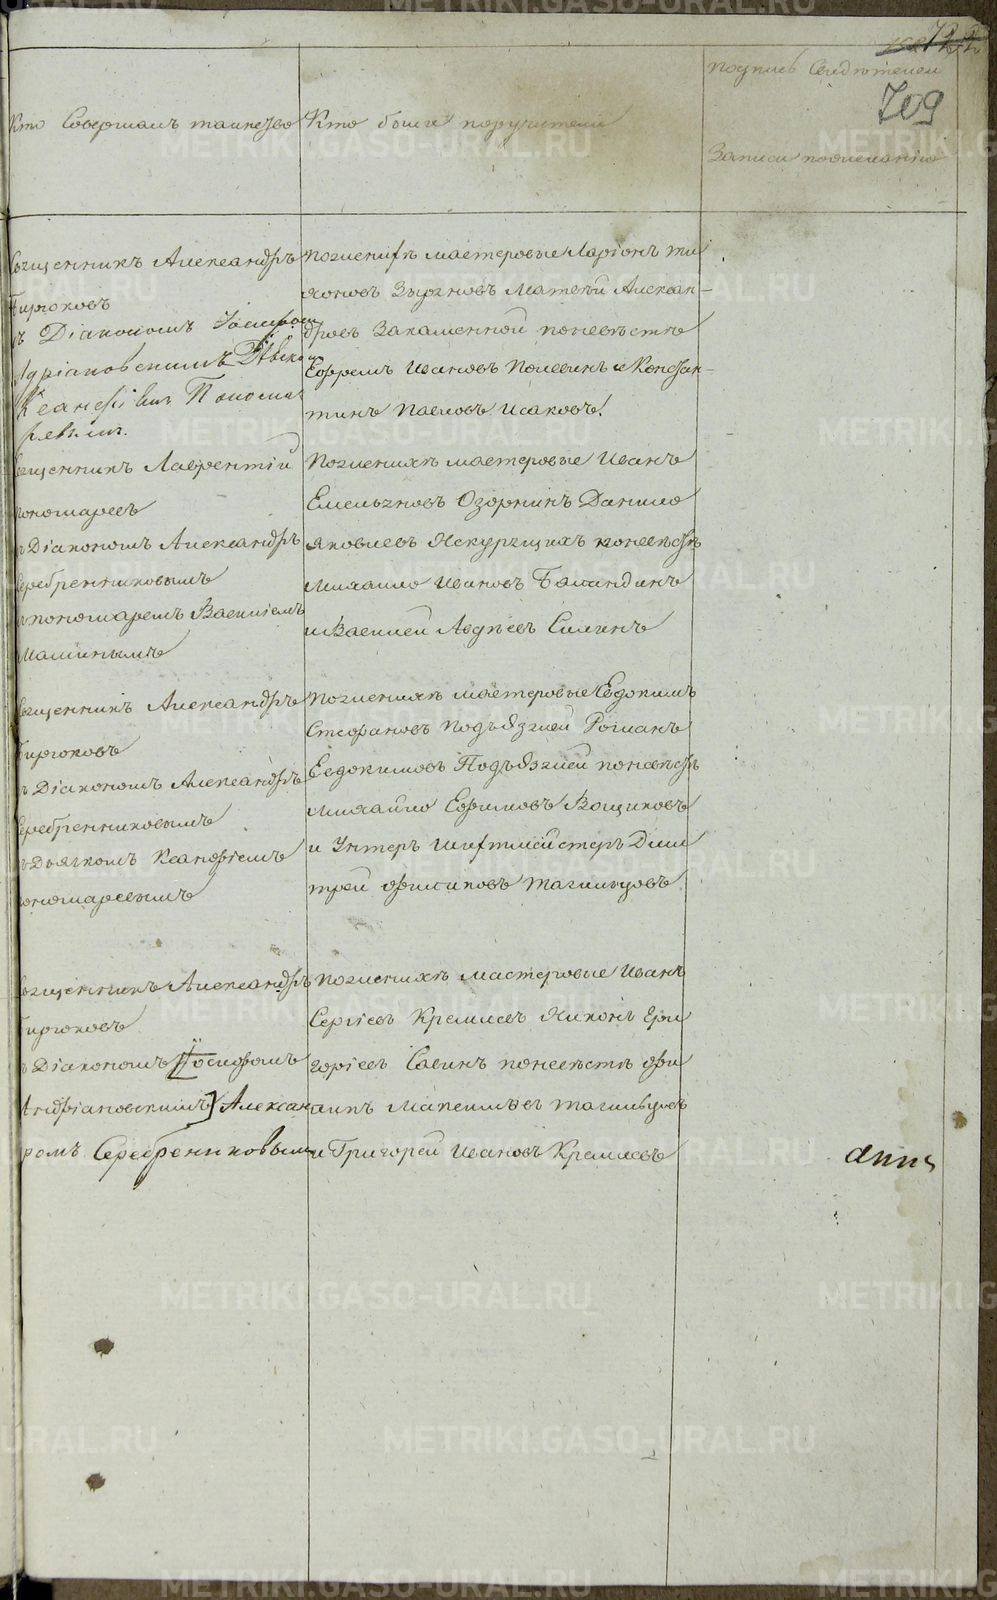 709
Кто Совершалъ таинство
Кто были поручители
подпись Свидѣтелей
Записи по желанію
Священникъ Александръ
Бирюковъ
съ Діакономъ Іосифом
Адріановскимъ
Пономаревымъ.
По женихѣ мастеровые Ларіонъ Ти
хоновъ Зыряновъ Матвѣй Алексан-
дровъ Закаменной по невѣстѣ
Ефремъ Ивановъ Полевинъ и Констан-
тинъ Павловъ Исаковъ.
Священникъ Лаврентій
Пономаревъ
съ Діакономъ Александръ
Серебренниковымъ
и пономаремъ Василіемъ
Мамінымъ
По женихѣ мастеровые Иванъ
Емельяновъ Озорнинъ Данило
Яковлевъ Искурящихъ по невѣстѣ
Михайло Ивановъ Баландинъ
и Василей Авдѣевъ Силинъ
Священникъ Александръ
Бирюковъ
съ Діакономъ Александръ
Серебренниковымъ
съ Дьячкомъ Ксанфіемъ
Пономаревымъ
По женихѣ мастеровые Евдокимъ
Стефановъ Подъѣзжей Романъ
Евдокимовъ Подъѣзжей по невѣстѣ
Михайло Ефимовъ Ващиковъ
и Унтеръ Шихтмейстеръ Дми
трей Тагильцовъ
Священникъ Александръ
Бирюковъ
съ Діакономъ Іосифомъ
Андріановскимъ Алексан
дромъ Серебрениковым
По женихѣ мастеровые Иванъ
Сергіевъ Кремлевъ Никонъ Гри
горіевъ Савинъ по невѣстѣ Фи
липъ Максимовъ Тагильцовъ
и Григорей Ивановъ Кремлевъ
METRIKI.GASO-URAL.RU